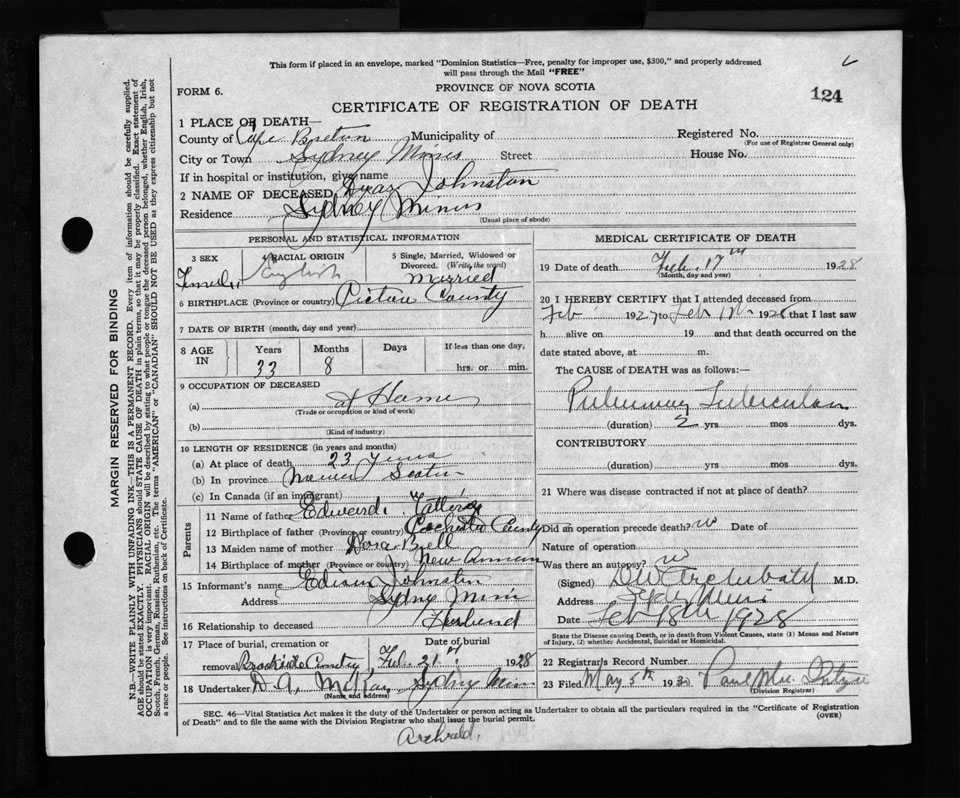 This form if placed in an envelope, marked "Dominion Statistics—Free, penalty for improper use, $300," and properly addressed
will pass through the Mail "FREE"
FORM 6.
PROVINCE OF NOVA SCOTIA
124
CERTIFICATE OF REGISTRATION OF DEATH
1 PLACE OF DEATH—
County of Cape Breton Municipality of Registered No.
(For use of Registrar General only)
City or Town Sydney Mines Street House No.
If in hospital or institution, give name
2 NAME OF DECEASED Johnston
Residence Sydney Mines
(Usual place of abode)
PERSONAL AND STATISTICAL INFORMATION
3 SEX 4 RACIAL ORIGIN 5 Single, Married, Widowed or
Divorced. (Write the word)
Female English Married
6 BIRTHPLACE (Province or country) Pictou County
7 DATE OF BIRTH (month, day and year)
8 AGE IN Years Months Days If less than one day,
33 8 hrs. or min.
9 OCCUPATION OF DECEASED
(a) at Home
(Trade or occupation or kind of work)
(b)
(Kind of industry)
10 LENGTH OF RESIDENCE (in years and months)
(a) At place of death 23 years
(b) In province Nova Scotia
(c) In Canada (if an immigrant)
Parents
11 Name of father Edward
12 Birthplace of father (Province or country) Colchester County
13 Maiden name of mother Dora Bell
14 Birthplace of mother (Province or country) New Annan
15 Informant's name Edison Johnston
Address Sydney Mines
16 Relationship to deceased Husband
17 Place of burial, cremation or Date of burial
removal Brookside Cemetery Feb. 21st 1928
18 Undertaker D. A. McKay Sydney Mines
(Name and address)
MEDICAL CERTIFICATE OF DEATH
19 Date of death Feb. 17th 1928
(Month, day and year)
20 I HEREBY CERTIFY that I attended deceased from
Feb 1927 to Feb 1928 that I last saw
h alive on 19 and that death occurred on the
date stated above, at m.
The CAUSE of DEATH was as follows:—
Pulmonary Tuberculosis
(duration) 2 yrs mos dys.
CONTRIBUTORY
(duration) yrs. mos dys.
21 Where was disease contracted if not at place of death?
Did an operation precede death? no Date of
Nature of operation
Was there an autopsy? no
(Signed) D W Archibald M.D.
Address Mines
Date Feb 18th 1928
State the Disease causing Death, or in death from Violent Causes, state (1) Means and Nature
of Injury, (2) whether Accidental, Suicidal or Homicidal.
22 Registrar's Record Number
23 Filed May 5th 193
(Division Registrar)
SEC. 46—Vital Statistics Act makes it the duty of the Undertaker or person acting as Undertaker to obtain all the particulars required in the "Certificate of Registration
of Death" and to file the same with the Division Registrar who shall issue the burial permit.
(OVER)
Archibald.
MARGIN RESERVED FOR BINDING
N.B.—WRITE PLAINLY WITH UNFADING INK—THIS IS A PERMANENT RECORD. Every item of information should be carefully supplied.
AGE should be stated EXACTLY. PHYSICIANS should STATE CAUSE OF DEATH in plain terms, so that it may be properly classified. Exact statement of
OCCUPATION is very important. RACIAL ORIGIN will be described by stating to what people or tongue the deceased person belonged, whether English, Irish,
Scotch, French, German, Russian, Ruthenian, etc. The terms "AMERICAN" or "CANADIAN" SHOULD NOT BE USED as they express citizenship but not
a race or people. See instructions on back of Certificate.